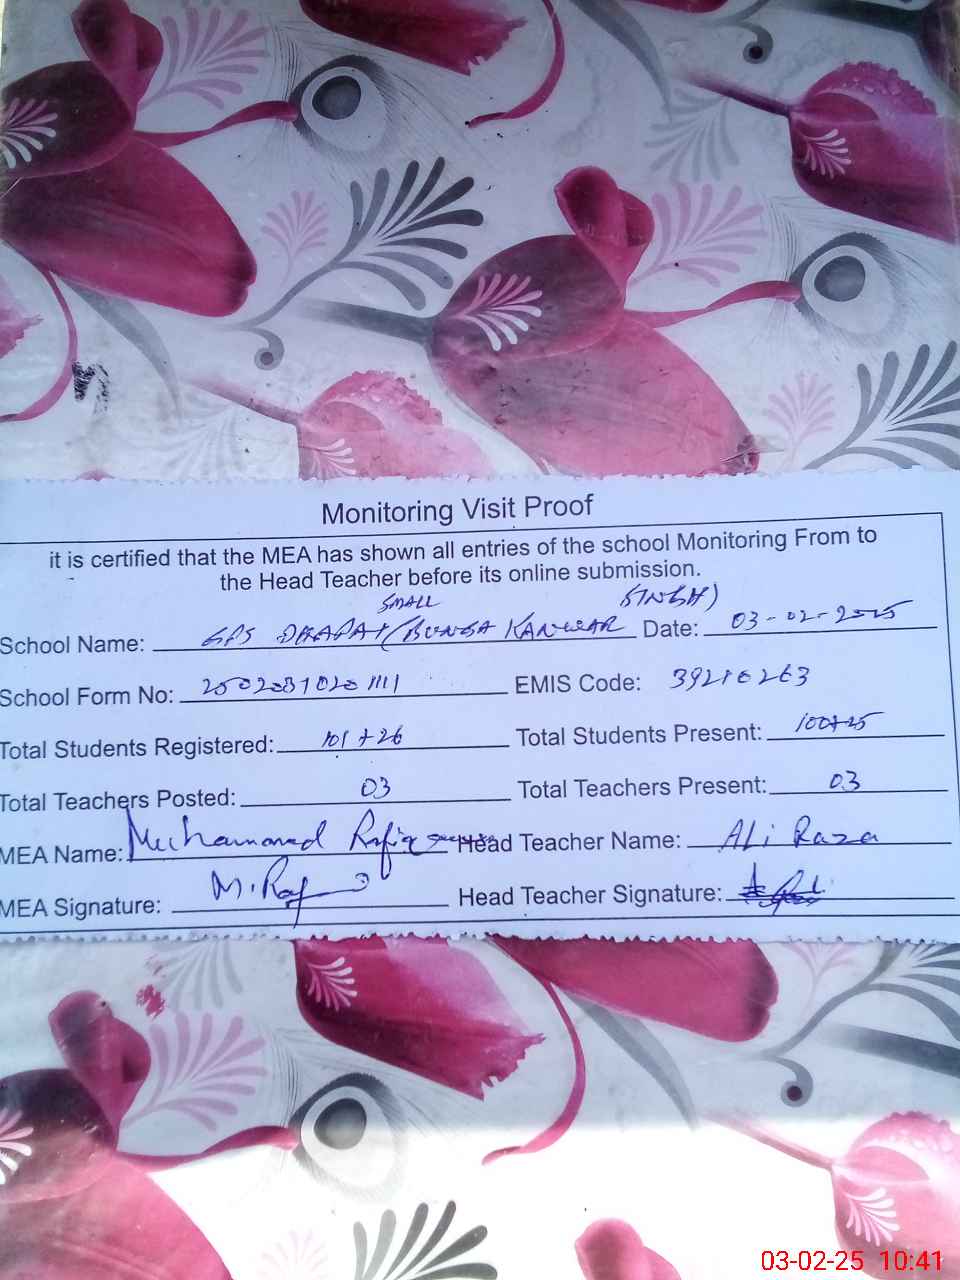 Monitoring Visit Proof
it is certified that the MEA has shown all entries of the school Monitoring From to
the Head Teacher before its online submission.
School Name: GPS (BUNGA KANWAR SINGH) SMALL Date: 03-02-2025
School Form No: EMIS Code: 39210263
Total Students Registered: 101+26 Total Students Present: 100+25
Total Teachers Posted: 03 Total Teachers Present: 03
MEA Name: Muhammad Rafiq Head Teacher Name: Ali Raza
MEA Signature: M. Raf Head Teacher Signature:
03-02-25 10:41